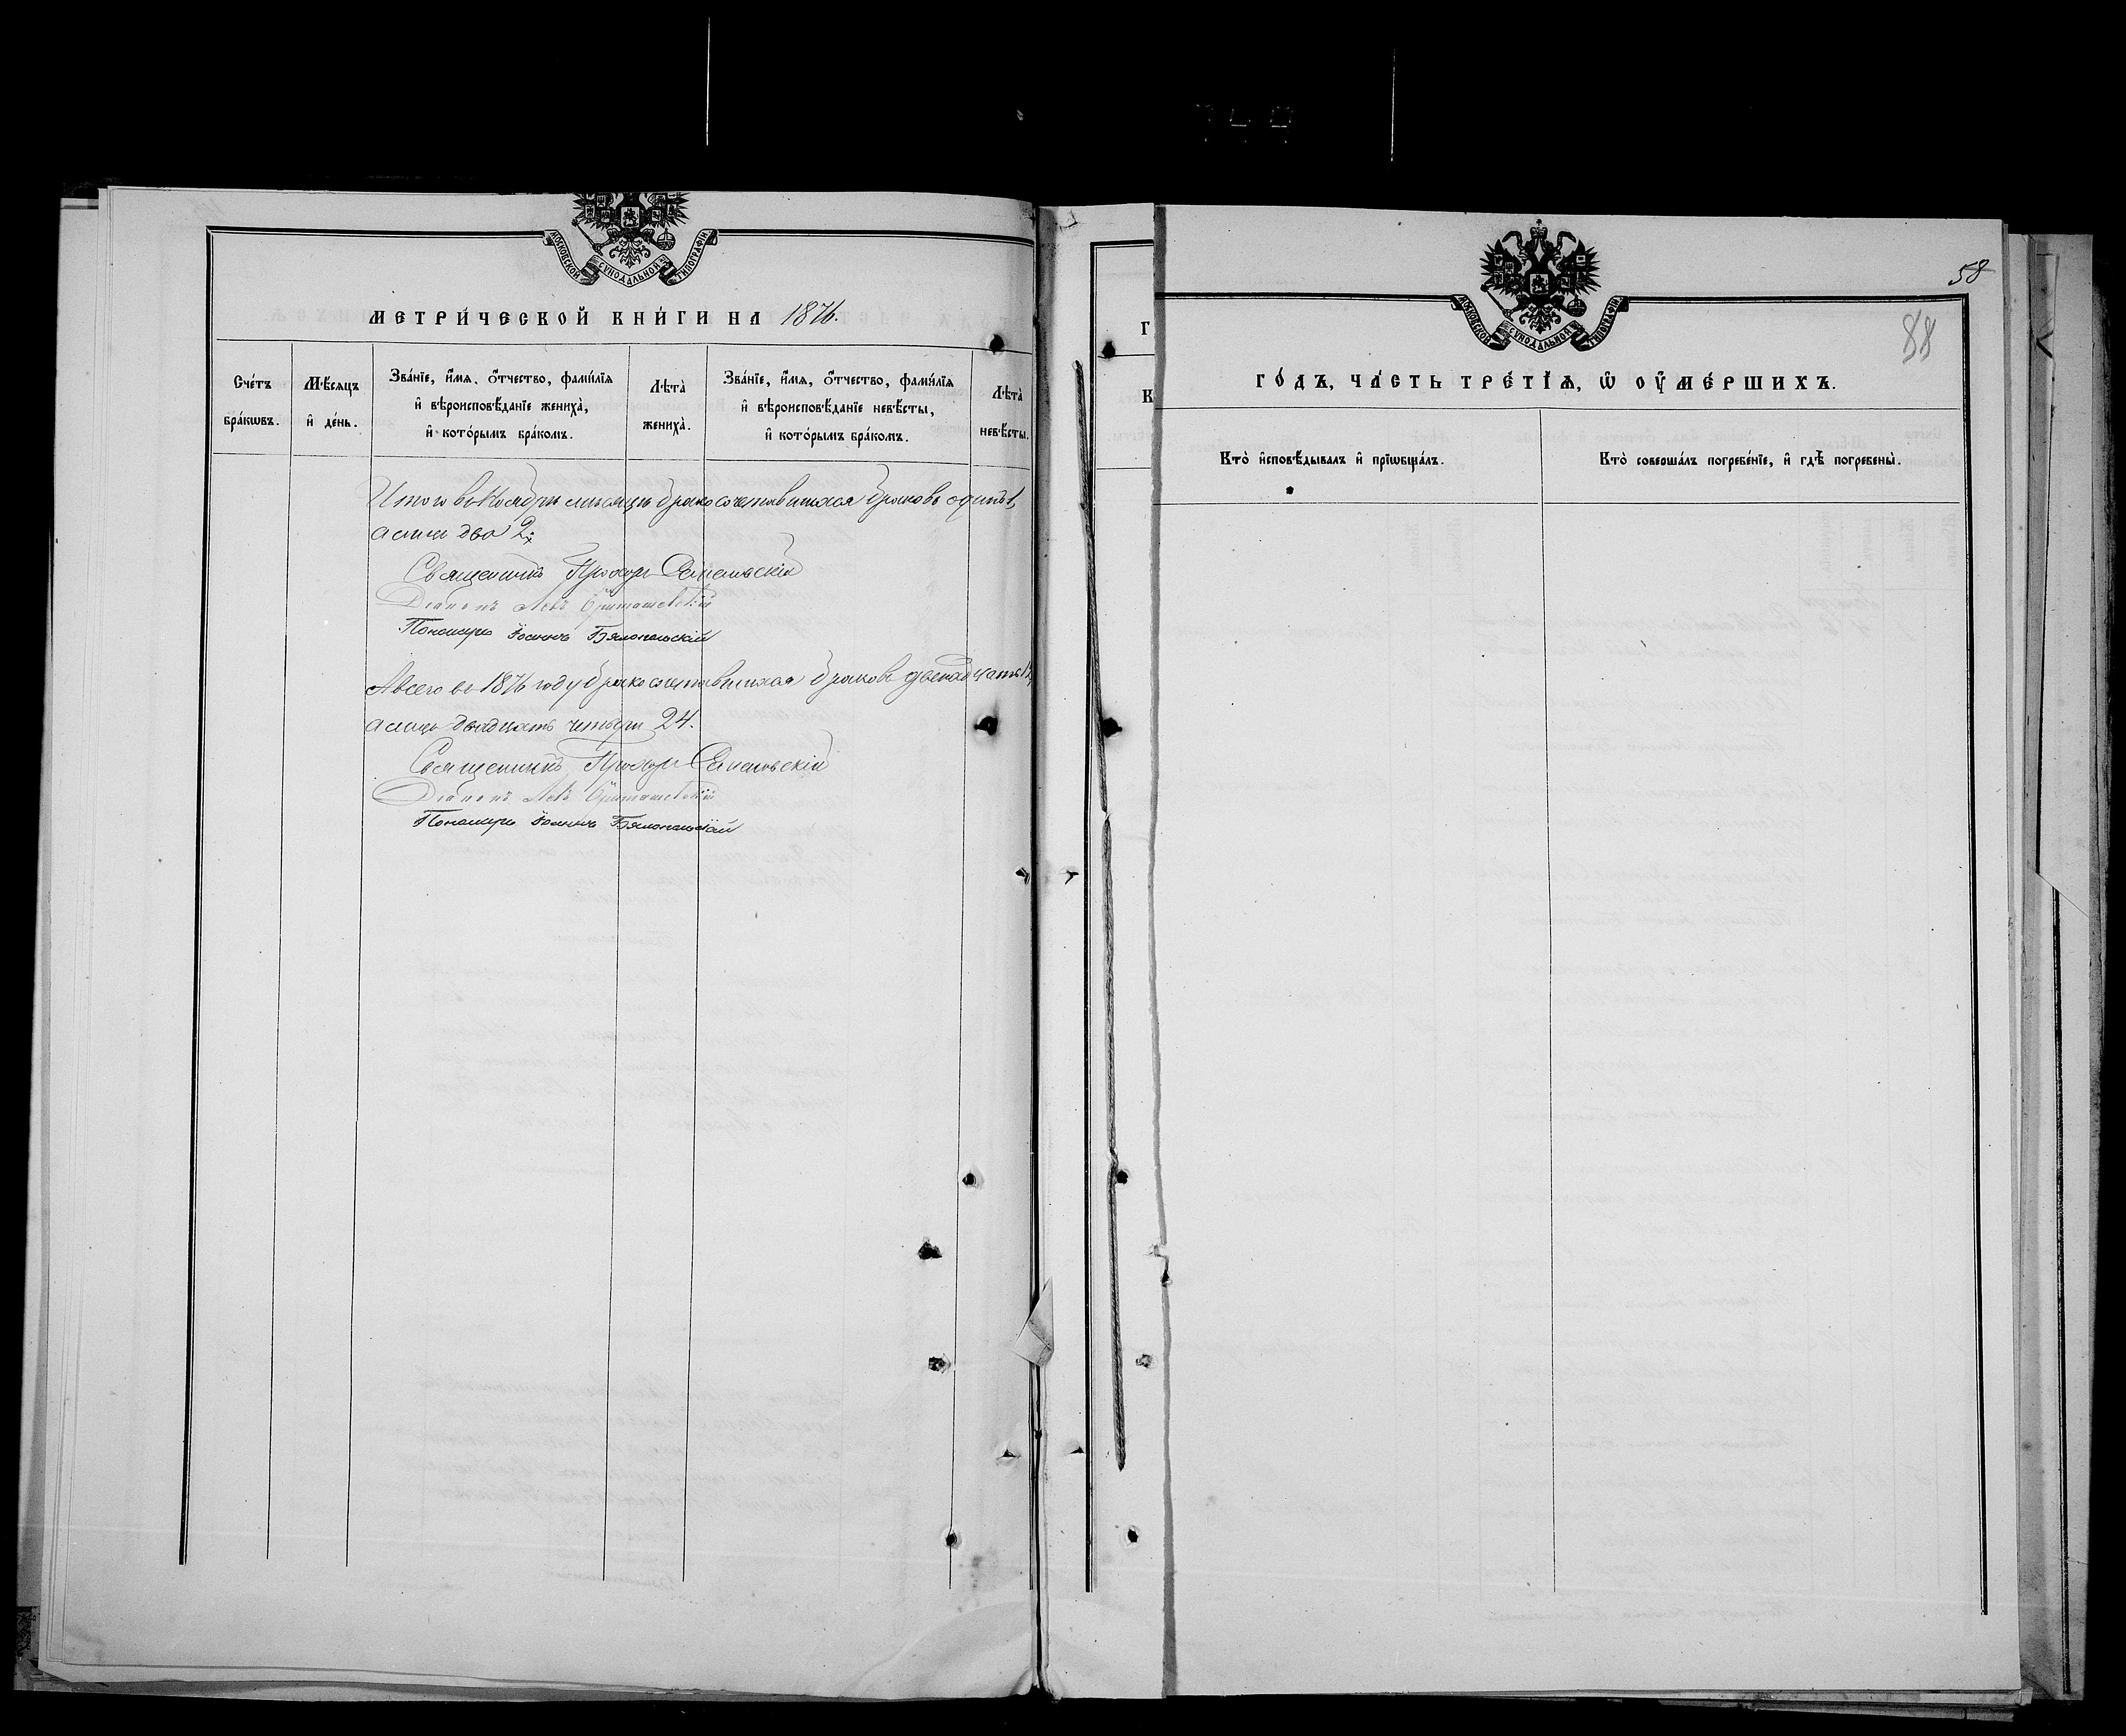 МОСКОВСКОЙ СѴНОДАЛЬНОЙ ТИПОГРАФІИ
МЕТРИ́ЧЕСКОЙ КНИ́ГИ НА 1876.
Сче́тъ бра́кѡвъ.
Мѣ́сѧцъ и҆ де́нь.
Зва́нїе, и҆́мѧ, ѻ҆́тчество, фами́лїѧ
и҆ вѣроисповѣ́данїе жениха̀,
и҆ кото́рымъ бра́комъ.
Лѣта̀ жениха̀.
Зва́нїе, и҆́мѧ, ѻ҆́тчество, фами́лїѧ
и҆ вѣроисповѣ́данїе невѣ́сты,
и҆ кото́рымъ бра́комъ.
Лѣта̀ невѣ́сты.
Итого въ Ноябрѣ мѣсяцѣ бракосочетавшихся браковъ одинъ 1,
а лицъ два 2.
Священникъ Прохоръ
Діаконъ Левъ
Пономарь Іоаннъ
А всего въ 1876 году бракосочетавшихся браковъ двенадцать 12,
а лицъ двадцать четыре 24.
Священникъ Прохоръ
Діаконъ Левъ
Пономарь Іоаннъ
Г
К
58
88
МОСКОВСКОЙ СѴНОДАЛЬНОЙ ТИПОГРАФІИ
ГО́ДЪ, ЧА́СТЬ ТРЕ́ТЇѦ, Ѡ҆ ОУ҆МЕ́РШИХЪ.
Кто̀ и҆сповѣ́дывалъ и҆ прїѡбща́лъ.
Кто̀ соверша́лъ погребе́нїе, и҆ гдѣ̀ погребены̀.